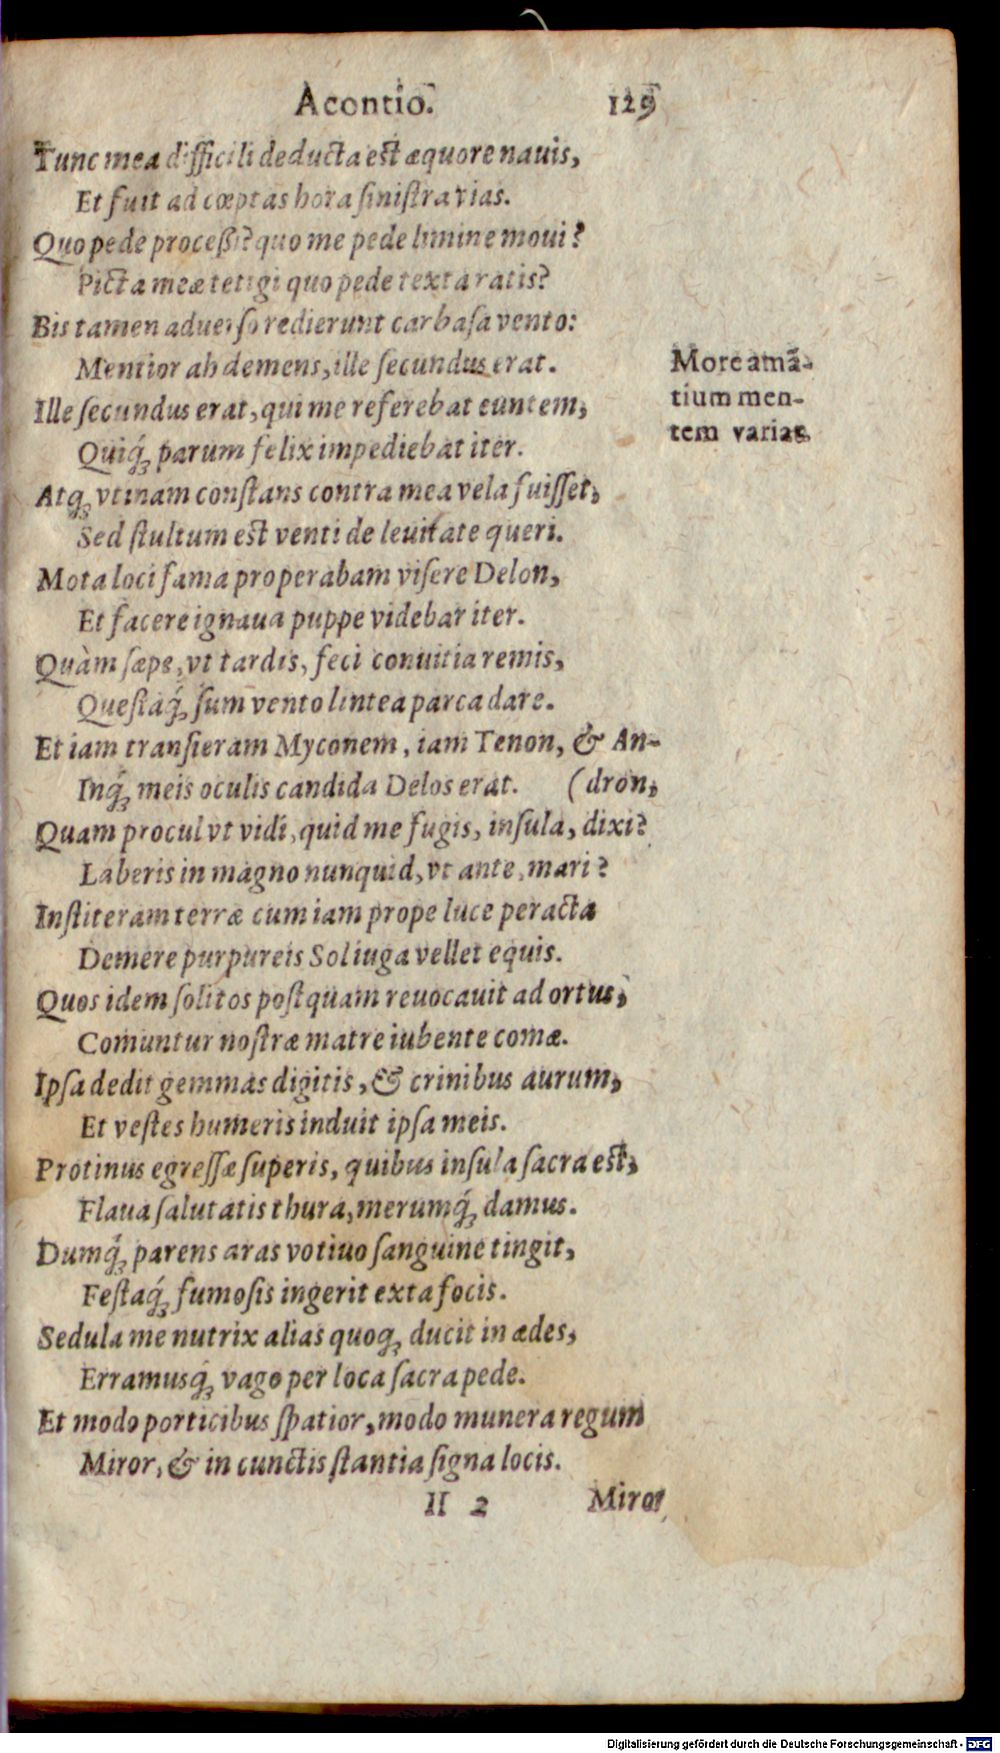 Acontio. 129
Tunc mea difficili deducta est æquore nauis,
Et fuit ad cœptas hora ſiniſtra vias.
Quo pede proceßi? quo me pede limine moui?
Picta meæ tetigi quo pede texta ratis?
Bis tamen aduerſo redierunt carbaſa vento:
Mentior ah demens, ille ſecundus erat.
Ille ſecundus erat, qui me referebat euntem,
Quiq́ꝫ parum felix impediebat iter.
Atqꝫ vtinam conſtans contra mea vela fuiſſet,
Sed ſtultum est venti de leuitate queri.
Mota loci fama properabam viſere Delon,
Et facere ignaua puppe videbar iter.
Quàm ſæpe, vt tardis, feci conuitia remis,
Queſtaq́ꝫ ſum vento lintea parca dare.
Et iam tranſieram Myconem, iam Tenon, & An-
Inq́ꝫ meis oculis candida Delos erat. (dron,
Quam procul vt vidi, quid me fugis, inſula, dixi?
Laberis in magno nunquid, vt ante, mari?
Inſtiteram terræ cum iam prope luce peracta
Demere purpureis Sol iuga vellet equis.
Quos idem ſolitos poſtquam reuocauit ad ortus,
Comuntur noſtræ matre iubente comæ.
Ipſa dedit gemmas digitis, & crinibus aurum,
Et veſtes humeris induit ipſa meis.
Protinus egreſſæ ſuperis, quibus inſula ſacra est,
Flaua ſalutatis thura, merumq́ꝫ damus.
Dumq́ꝫ parens aras votiuo ſanguine tingit,
Feſtaq́ꝫ fumoſis ingerit exta focis.
Sedula me nutrix alias quoqꝫ ducit in ædes,
Erramusq́ꝫ vago per loca ſacra pede.
Et modo porticibus ſpatior, modo munera regum
Miror, & in cunctis ſtantia ſigna locis.
H 2 Miror
More amã-
tium men-
tem variat.
Digitalisierung gefördert durch die Deutsche Forschungsgemeinschaft - DFG